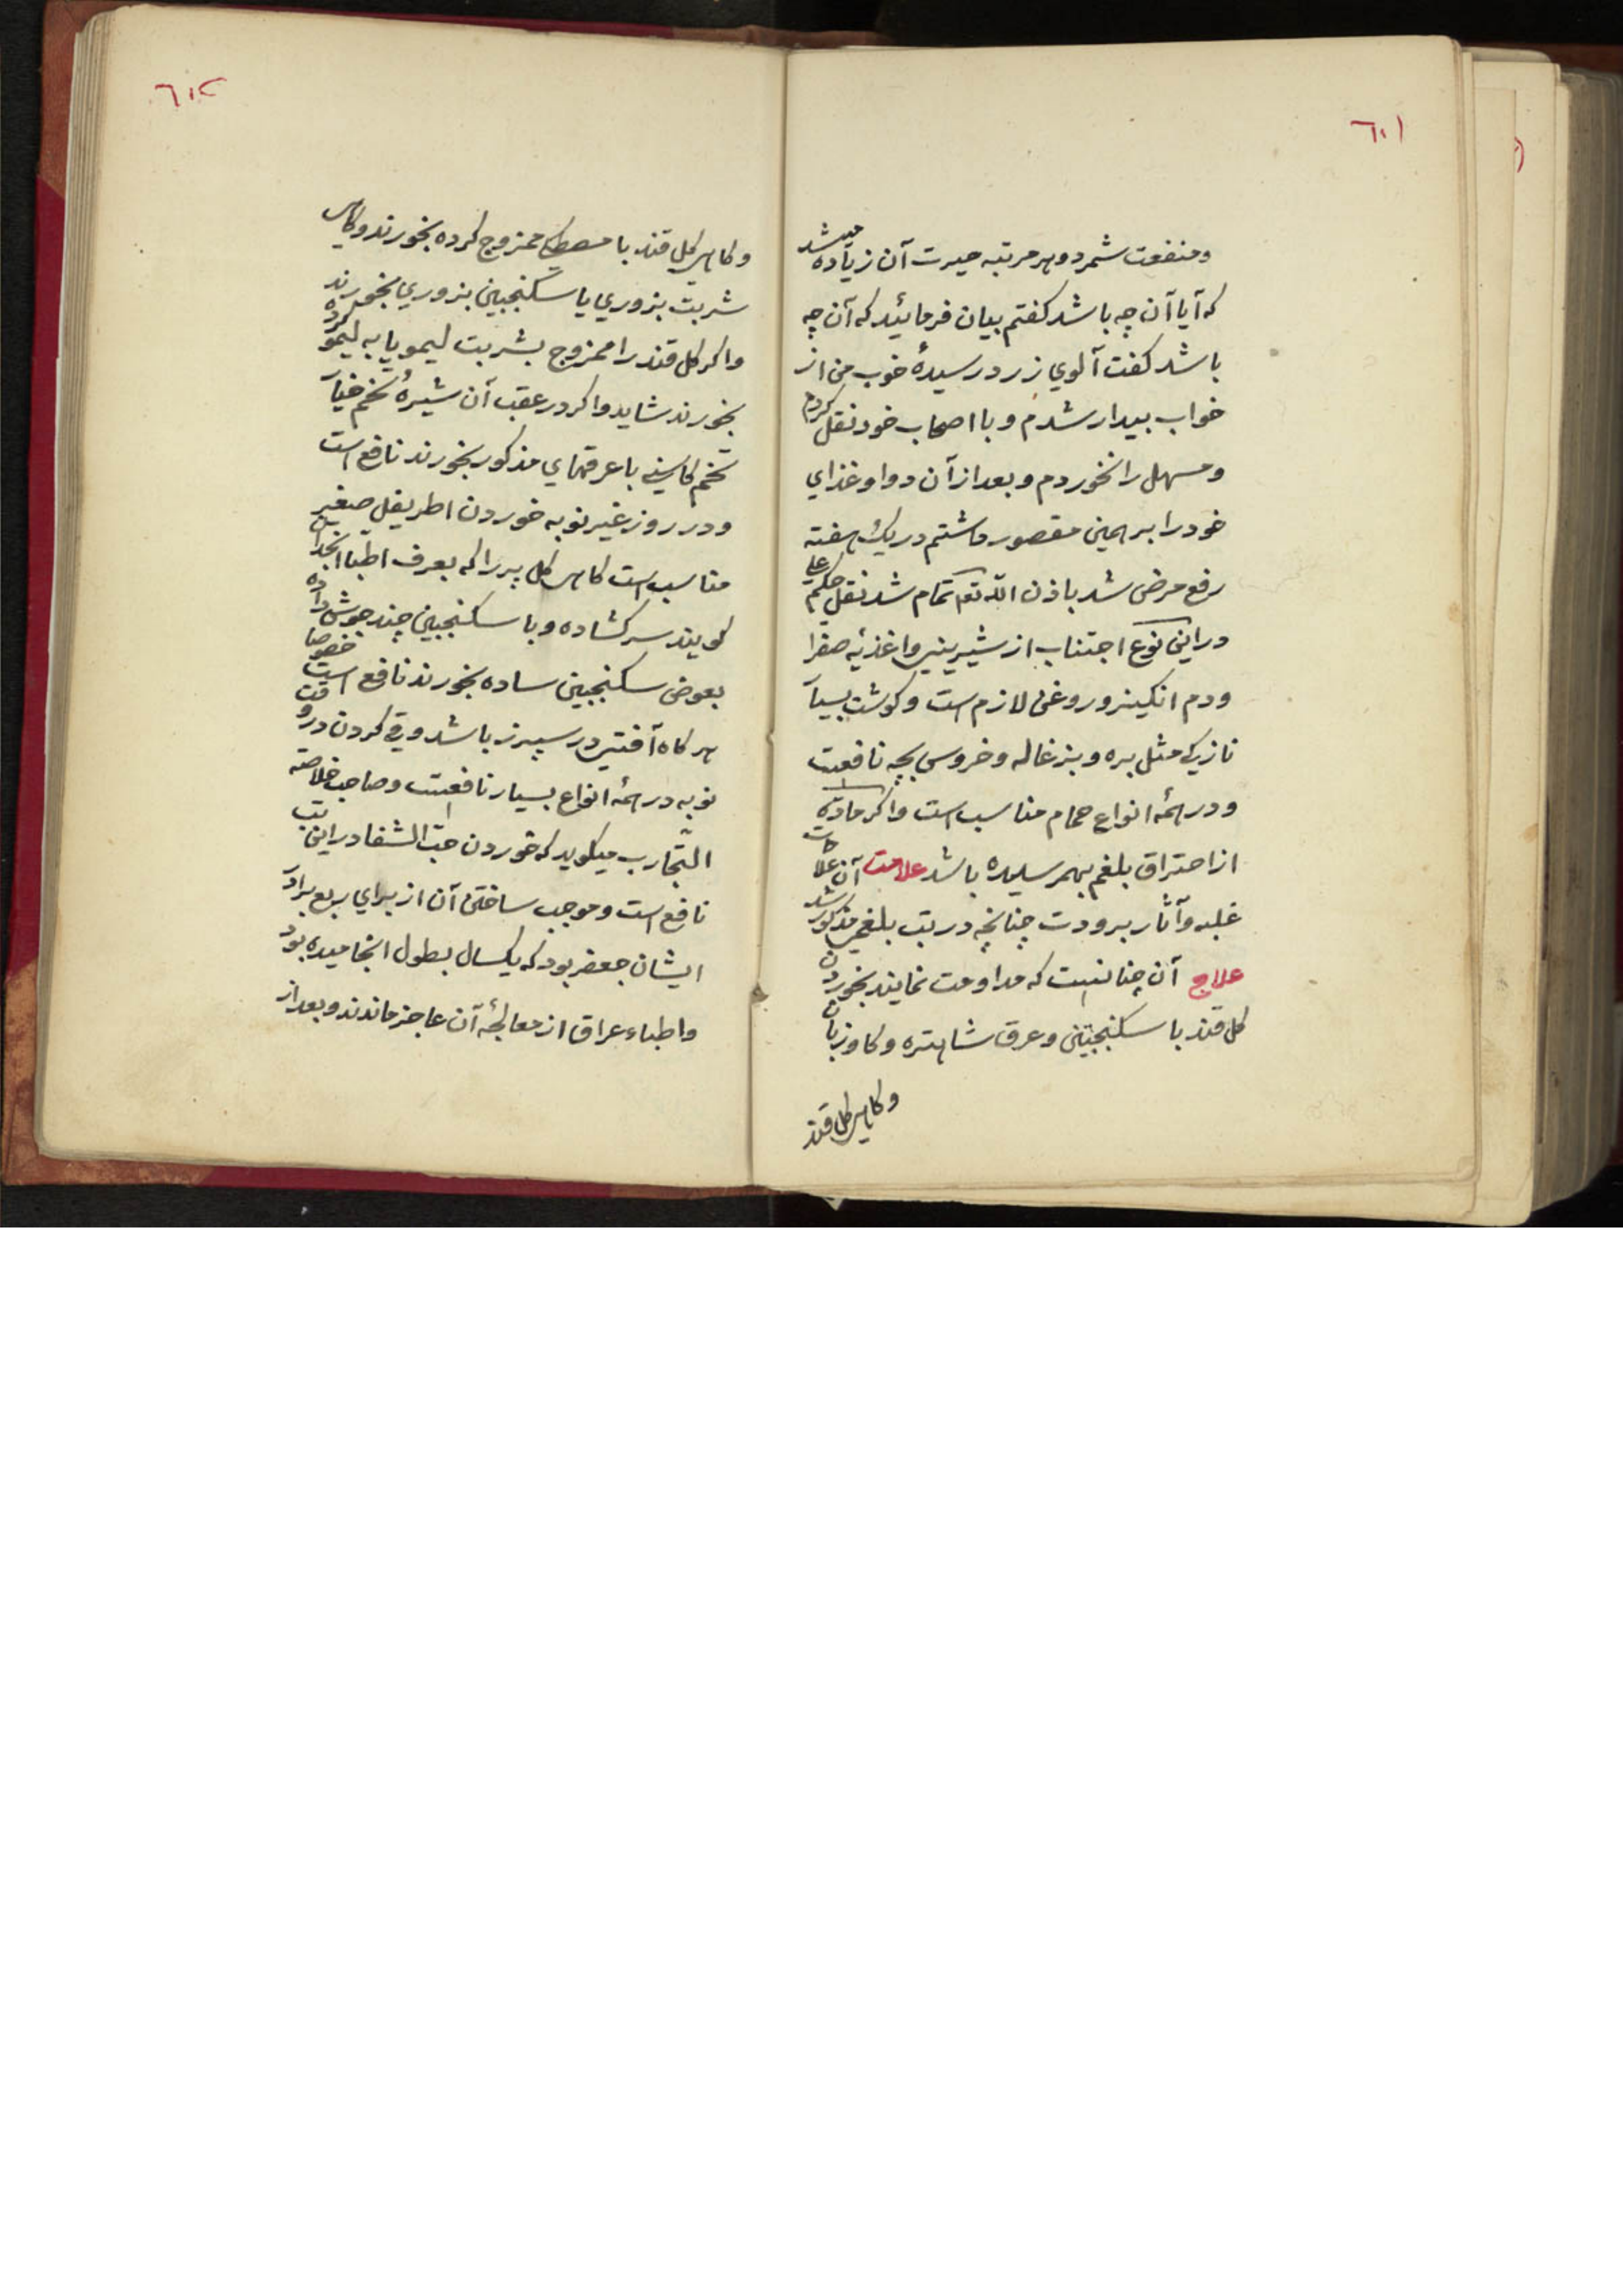 ٦٠١
ومنفعت شمرد وهر مرتبه حیرت آن زیاده میشد
که آیا آن چه باشد کفتم بیان فرمائید که آن چه
باشد کفت آلوي زرد رسیدهٔ خوب من از
خواب بیدار شدم و با اصحاب خود نقل کردم
ومسهل را نخوردم و بعد از آن دوا و غذاي
خود را بر همین مقصور داشتم در یك هفته
رفع مرض شد باذن الله تع تمام شد نقل حکیم علي
در این نوع اجتناب از شیریني واغذیهٔ صفرا
ودم انکیز و روغن لازم است وکوشت بسیار
نازك مثل بره و بزغاله و خروس بچه نافعست
ودر همهٔ انواع حمام مناسب است واکر مادّه
از احتراق بلغم بهمرسیده باشد علامت آن علامات
غلبه وآثار برودت چنانچه در تب بلغمي مذکور شد
علاج آن چنانست که مداومت نمایند بخوردن
کل قند با سکنجبین و عرق شاهتره و کاو زبان
وکاهي کل قند
٦٠٢
وکاهي کل قند با مصطکي ممزوج کرده بخورند وکاهي
شربت بزوري یا سکنجبین بزوري بخورند
واکر کل قند را ممزوج بشربت لیمو یا به لیمو کرده
بخورند شاید واکر در عقب آن شیرهٔ تخم خیار
تخم کاسني با عرقهاي مذکور بخورند نافع است
ودر روز غیر نوبه خوردن اطریفل صغیر
مناسب است کاهي کل بر را که بعرف اطبا انجدان
کویند سرکشاده و با سکنجبین چند جوش داده
بعوض سکنجبین ساده بخورند نافع است خصوصا
هر کاه آفتي در سپرز باشد وقي کردن در وقت
نوبه در همهٔ انواع بسیار نافعست وصاحب خلاصه
التّجارب میکوید که خوردن حبّ الشفا در این تب
نافع است وموجب ساختن آن از براي ربع برادر
ایشان جعفر بود که یکسال بطول انجامیده بود
واطباء عراق از معالجهٔ آن عاجز ماندند و بعد از